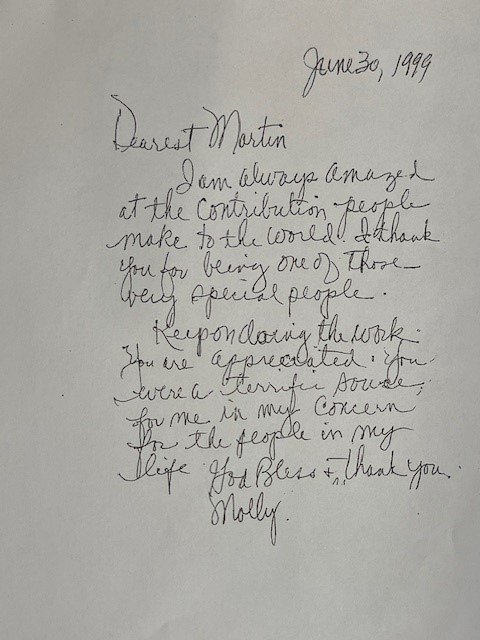 June 30, 1999
Dearest Martin
I am always amazed
at the contribution people
make to the world. I thank
you for being one of those
very special people.
Keep on doing the work.
You are appreciated. You
were a terrific source,
for me in my concern
for the people in my
life God Bless & Thank you.
Molly.